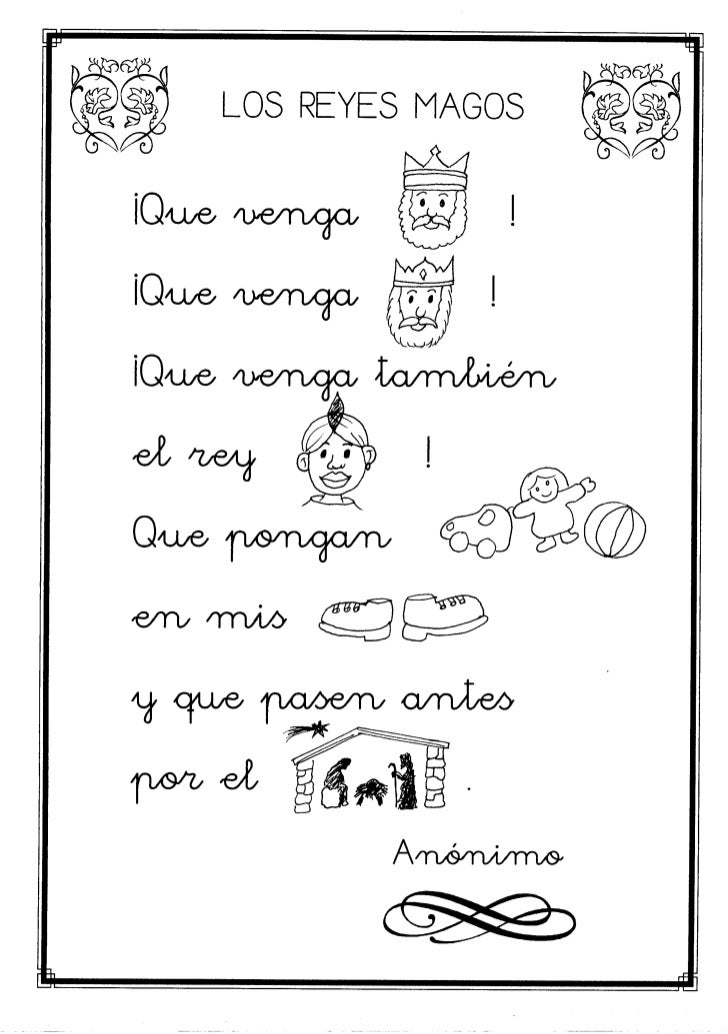 LOS REYES MAGOS
¡Que venga !
¡Que venga !
¡Que venga también
el rey !
Que pongan
en mis
y que pasen antes
por el .
Anónimo